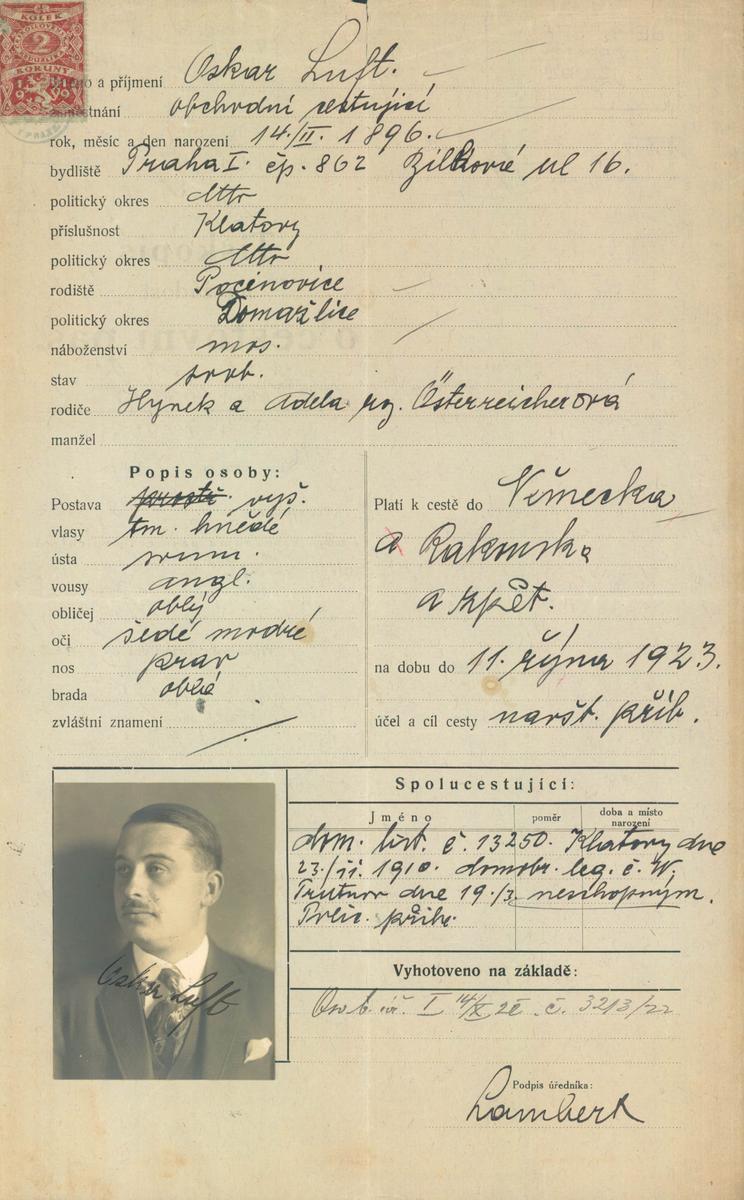 KOLEK
2
KORUNY
Jméno a příjmení Oskar Luft.
zaměstnání obchodní cestující
rok, měsíc a den narození 14./II. 1896.
bydliště Praha I. čp. 862 Bílkové ul 16.
politický okres dtto
příslušnost Klatovy
politický okres dtto
rodiště Pocinovice
politický okres Domažlice
náboženství mos.
stav svob.
rodiče Hynek a Adela roz. Österreicherová
manžel
Popis osoby:
Postava prostř. vyš.
vlasy tm. hnědé
ústa
vousy angl.
obličej oblý
oči šedé modré
nos prav
brada oblá
zvláštní znamení
Platí k cestě do Německa
a Rakouska
a zpět.
na dobu do 11. října 1923.
účel a cíl cesty navšt. příb.
Spolucestující:
Jméno poměr doba a místo narození
dom. list. č. 13250. Klatovy dne
23./II. 1910. domobr. leg. č. W.
Trutnov dne 19./3. neschopným.
Polic. přihl.
Oskar Luft
Vyhotoveno na základě:
Osob. č. 3213/22
Podpis úředníka:
Lambert